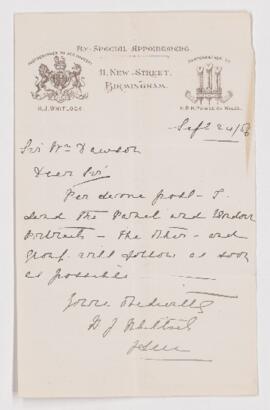 By Special Appointment.
PHOTOGRAPHER TO HER MAJESTY
H.J. WHITLOCK.
11, New-Street,
Birmingham.
PHOTOGRAPHER TO
H.R.H. Prince of Wales.
Sept 24/86
Sir Wm Dawson
Dear Sir
Per same post - I
send the Panel and
Portraits - The other - and
Group will follow as soon
as possible
Yours
H J Whitlock